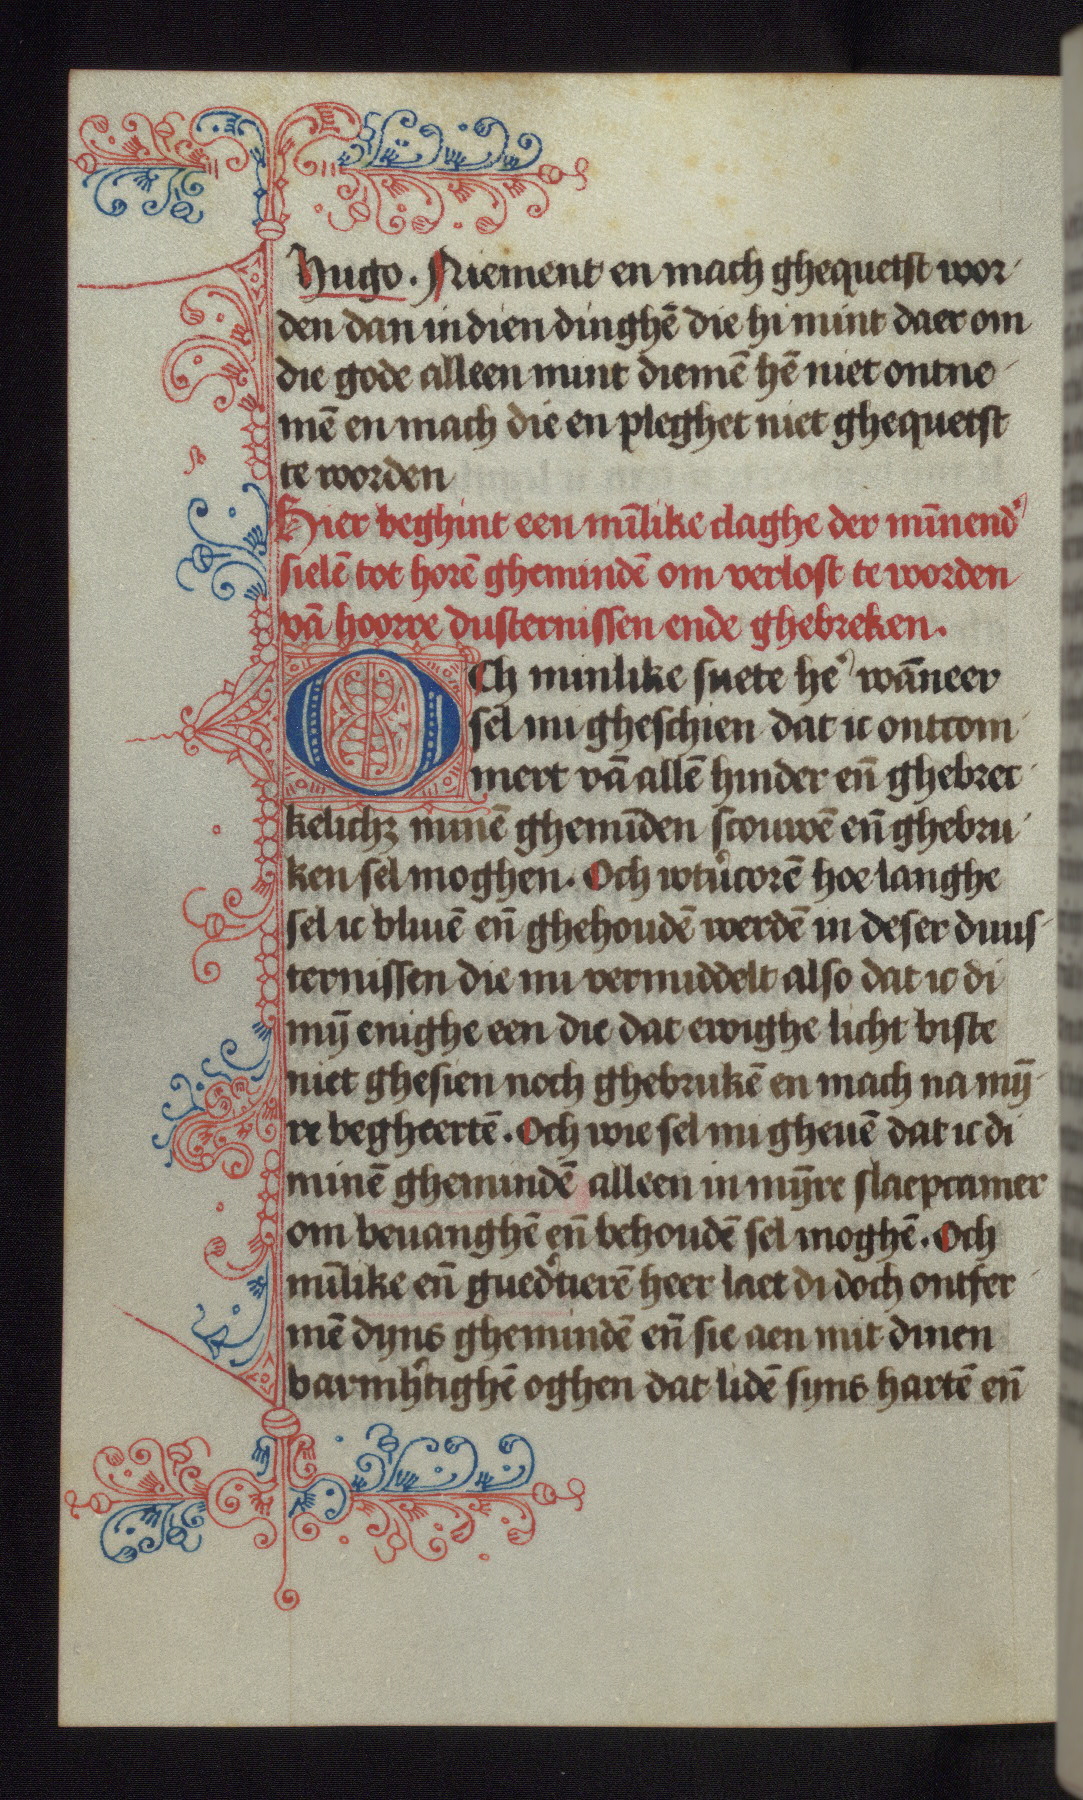 Hugo. Niement en mach ghequetst wor
den dan in dien dinghē die hi mint daer om
die gode alleen mint diemē hē niet ontne
mē en mach die en pleghet niet ghequetst
te worden
Hier beghint een mīlike claghe der minnend᾽
sielē tot horē ghemindē om verlost te worden
vā hoorre dusternissen ende ghebreken.
Och minlike suete he᾽ wāneer
sel mi gheschien dat ic ontcom
mert vā allē hinder eñ ghebrec
kelichz minē ghemīden scouwē eñ ghebru
ken sel moghen. Och wtūcorē hoe langhe
sel ic bliuē eñ ghehoudē werdē in deser duus
ternissen die mi vermiddelt also dat ic di
mȳ enighe een die dat ewighe licht biste
niet ghesien noch ghebrukē en mach na mȳ
re begheertē. Och wie sel mi gheuē dat ic di
minē ghemindē alleen in mȳre slaepcamer
om beuanghē eñ behoudē sel moghē. Och
mīlike eñ gued᾽tierē heer laet di doch ontfer
mē dyns ghemindē eñ sie aen mit dinen
barmh᾽tighē oghen dat lidē syns hartē eñ